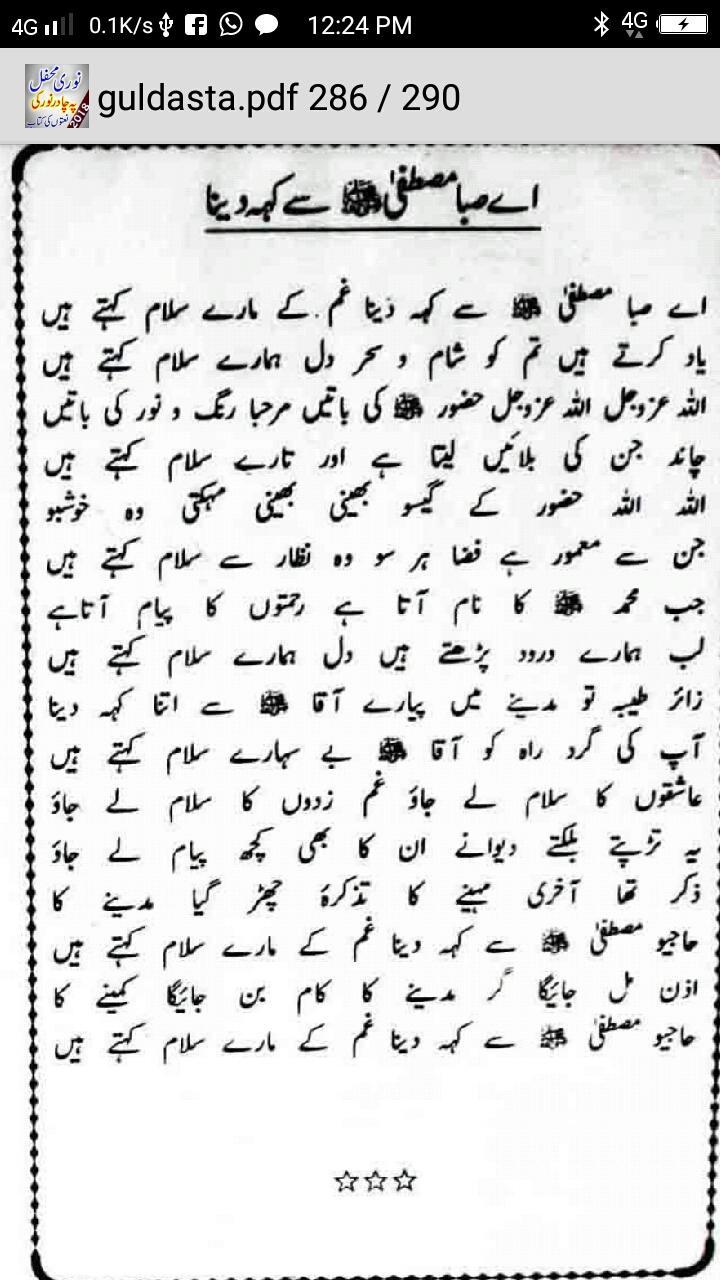 4G 0.1K/s 12:24 PM 4G
نوری محفل
پہ چادر نور کی
نعتوں کی کتاب
2018
guldasta.pdf 286 / 290
اے صبا مصطفیٰ ﷺ سے کہہ دینا
اے صبا مصطفیٰ ﷺ سے کہہ دینا غم کے مارے سلام کہتے ہیں
یاد کرتے ہیں تم کو شام و سحر دل ہمارے سلام کہتے ہیں
اللہ عزوجل اللہ عزوجل حضور ﷺ کی باتیں مرحبا رنگ و نور کی باتیں
چاند جن کی بلائیں لیتا ہے اور تارے سلام کہتے ہیں
اللہ اللہ حضور کے گیسو بھینی بھینی مہکتی وہ خوشبو
جن سے معمور ہے فضا ہر سو وہ نظار سے سلام کہتے ہیں
جب محمد ﷺ کا نام آتا ہے رحمتوں کا پیام آتاہے
لب ہمارے درود پڑھتے ہیں دل ہمارے سلام کہتے ہیں
زائر طیبہ تو مدینے میں پیارے آقا ﷺ سے اتنا کہہ دینا
آپ کی گرد راہ کو آقا ﷺ بے سہارے سلام کہتے ہیں
عاشقوں کا سلام لے جاؤ غم زدوں کا سلام لے جاؤ
یہ تڑپتے بلکتے دیوانے ان کا بھی کچھ پیام لے جاؤ
ذکر تھا آخری مہینے کا تذکرۂ چھڑ گیا مدینے کا
حاجیو مصطفیٰ ﷺ سے کہہ دینا غم کے مارے سلام کہتے ہیں
اذن مل جائیگا گر مدینے کا کام بن جائیگا کمینے کا
حاجیو مصطفیٰ ﷺ سے کہہ دینا غم کے مارے سلام کہتے ہیں
☆☆☆